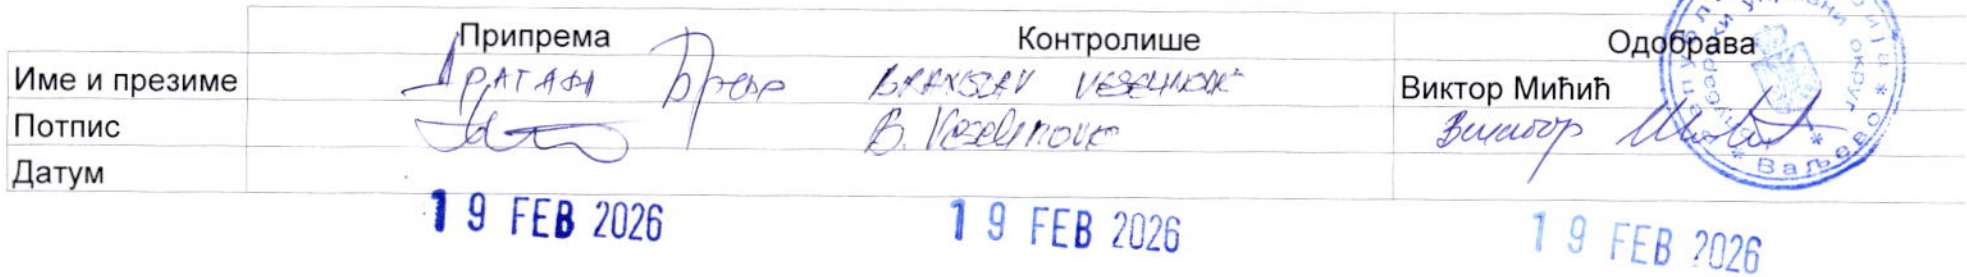 Припрема Контролише Одобрава
Име и презиме BRANISLAV VESELINOVIĆ Виктор Мићић
Потпис B. Veselinović Виктор Мићић
Датум
19 FEB 2026 19 FEB 2026 19 FEB 2026
управни округ
Ваљево